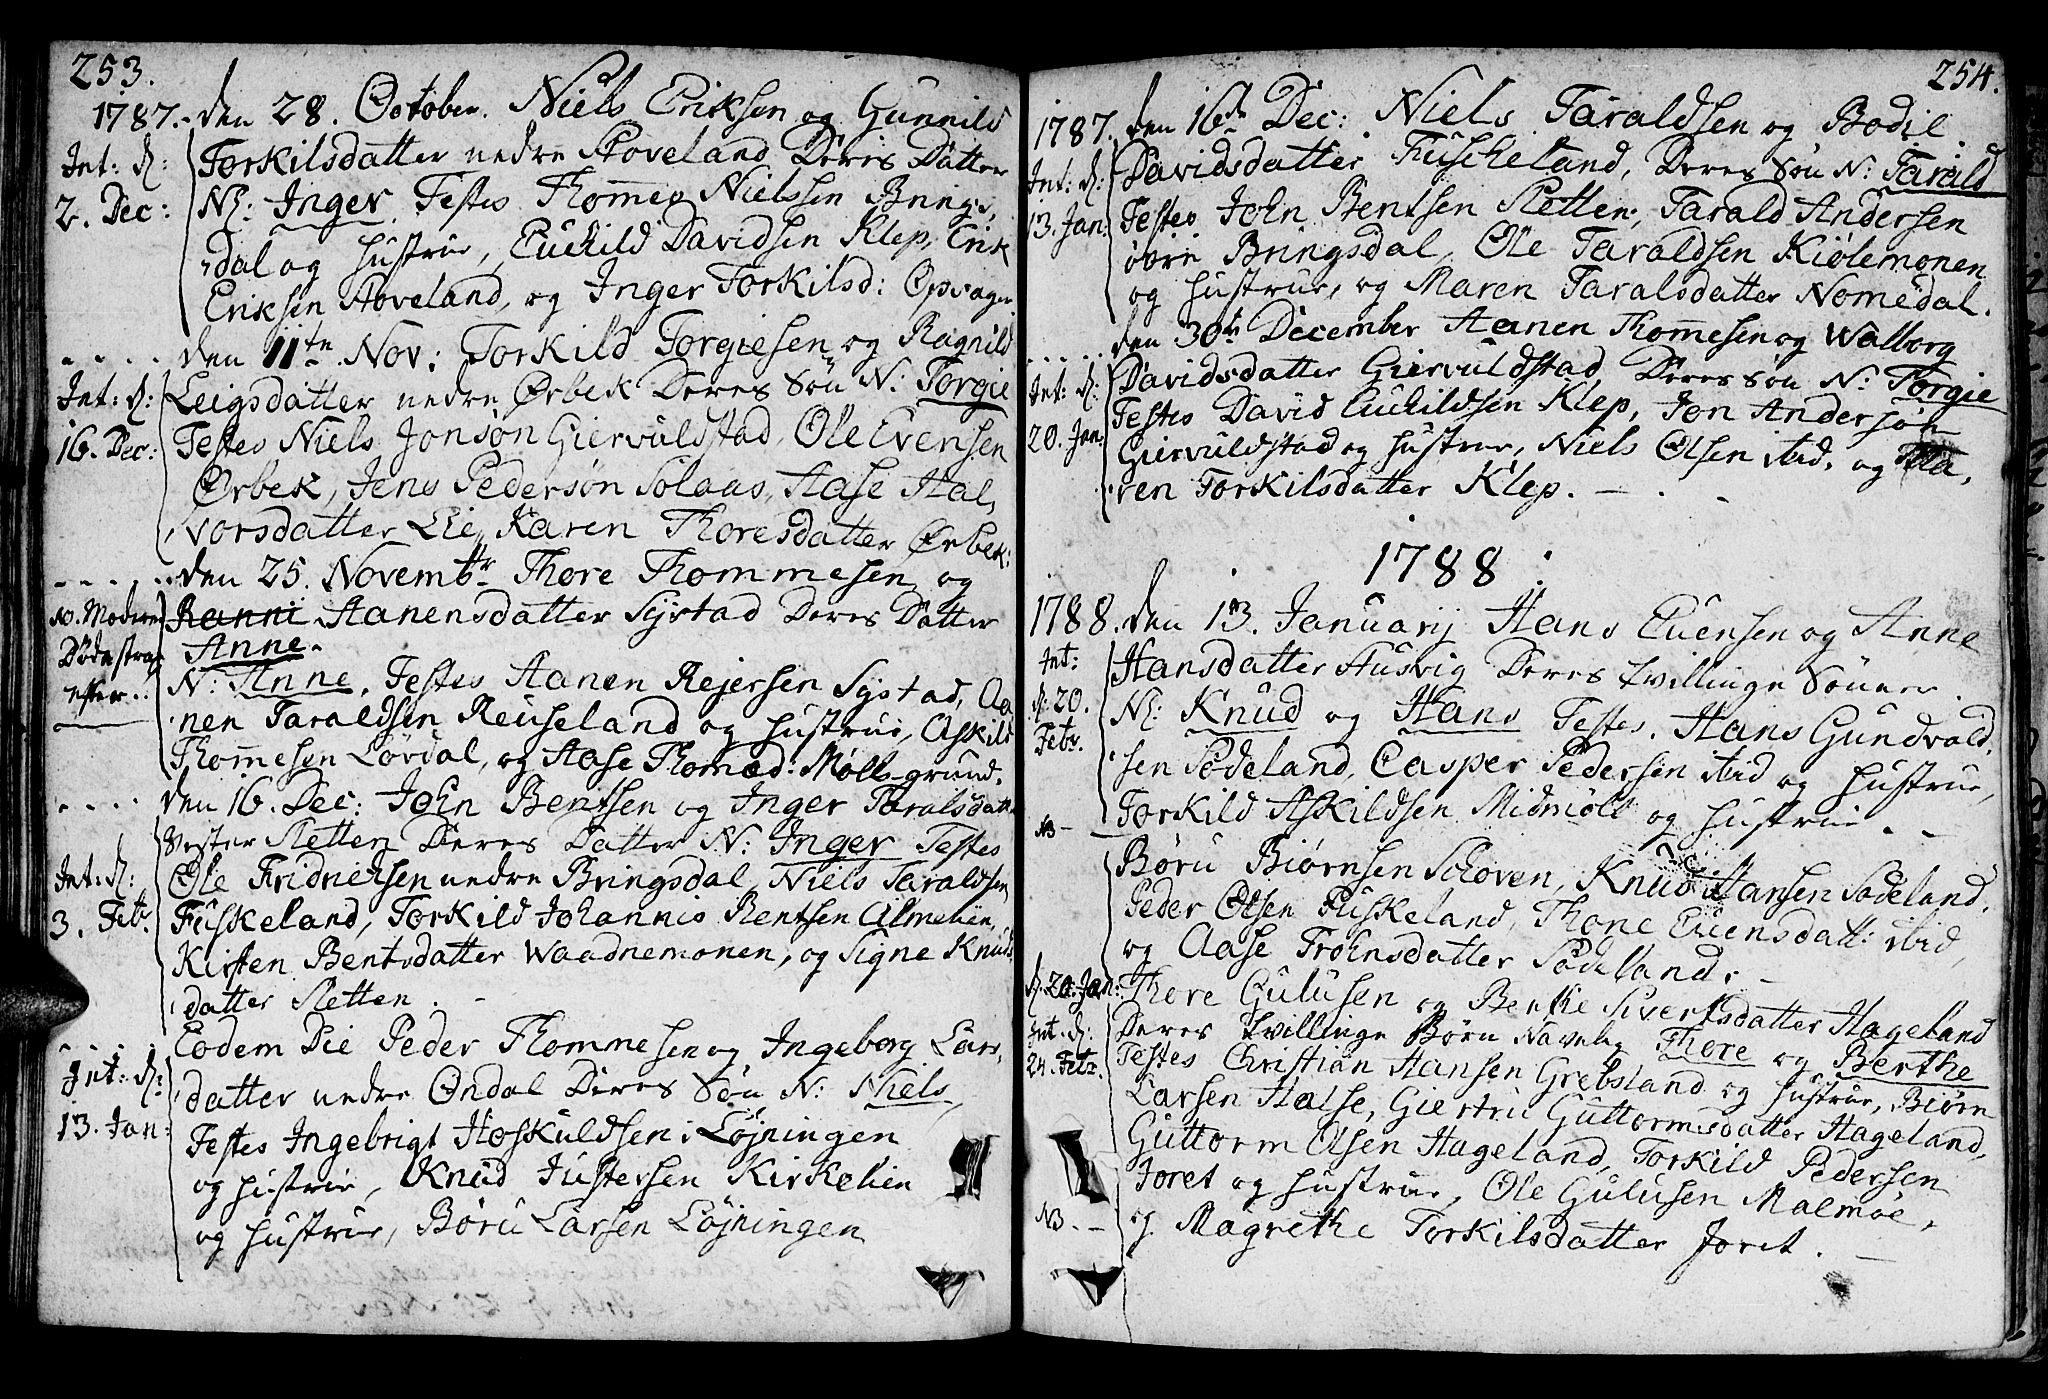 253.
1787. den 28. October. Niels Eriksen og Gunnild
Int: d: Torkilsdatter nedre Stoveland Deres Datter
2. Dec: N: Inger Testes Thommes Nielssen Brings,
dal og hustrue, Euchild Davidsen Klep, Erik
Eriksen Stoveland, og Inger Torkilsd: Opsager
den 11te Nov: Torkild Torgiesen og Ragnild
Int: d: Leigsdatter nedre Ørbek Deres Søn N: Torgie
16. Dec: Testes Niels Jonsøn Giervuldstad, Ole Evensen
Ørbek, Jens Pedersøn Solaas, Aase Hal,
vorsdatter Lie, Karen Thoresdatter Ørbek:
den 25. Novembr Thore Thommesen og
NB. Moderen Ranni Aanensdatter Systad Deres Datter
Døde strax Anne.
efter.. N: Anne. Testes Aanen Rejersen Systad, Aa
nen Taraldsen Reuseland og hustrue, Askild
Thommesen Løvdal, og Aase Thomæd: Møll-grund.
den 16. Dec: John Bentsen og Inger Taralsdatt
Vester Sletten Deres Datter N: Inger Testes
Int: d: Ole Fridrichsen nedre Bringsdal, Niels Taraldsen
3. Febr. Fuskeland, Torkild Johannis Bentsen Almelien,
Kirsten Bentsdatter Waadnemonen, og Signe Knuds
datter Sletten.
Eodem Die Peder Thommesen og Ingeborg Lars,
Int: d: datter nedre Øndal Deres Søn N: Niels,
13. Jan: Testes Ingebrigt Hoskuldsen i Løjningen
og hustrue, Knud Justersen Kirkelien
og hustrue, Børu Larsen Løjningen
254.
1787. den 16de Dec: Niels Taraldsen og Bodil
Int: d: Davidsdatter Fuscheland, Deres Søn N: Tarald
13. Jan: Testes John Bentsen Sletten, Tarald Andersen
øvre Bringsdal, Ole Taraldsen Kiølemonen
og hustrue, og Maren Taralsdatter Nomedal.
den 30te December Aanen Thommesen og Walborg
Int: d: Davidsdatter Giervuldstad Deres Søn N: Torgie
20. Jan: Testes David Euchildsen Klep, Jon Andersøn
Giervuldstad og hustrue, Niels Olsen ibid. og Ma,
ren Torkilsdatter Klep.
1788.
1788. den 13. Januarij Hans Evensen og Anne
Int: Hansdatter Husvig Deres tvillinge Sønner
d: 20. N: Knud og Hans Testes. Hans Gundvald,
Febr. sen Sødeland, Casper Pedersen ibid og hustrue,
Torkild Askildsen Midmøll og hustrue.
NB Børu Biørnsen Schoven, Knud Hansen Sødeland,
Peder Olsen Fuskeland, Thone Evensdatt: ibid,
og Aase Trohnsdatter Sødeland.
d. 20. Jan: Thore Gulusen og Benthe Sivertsdatter Hageland
Int: d: Deres tvillinge Børn Navnlig Thore og Berthe
24. Febr. Testes Christian Hansen Grebsland og hustrue, Biørn
Larsen Halse, Giertru Guttormsdatter Hageland,
Guttorm Olsen Hageland, Torkild Pedersen
Joret og hustrue, Ole Gulusen Malmøe,
NB. og Magrethe Torkilsdatter Joret.